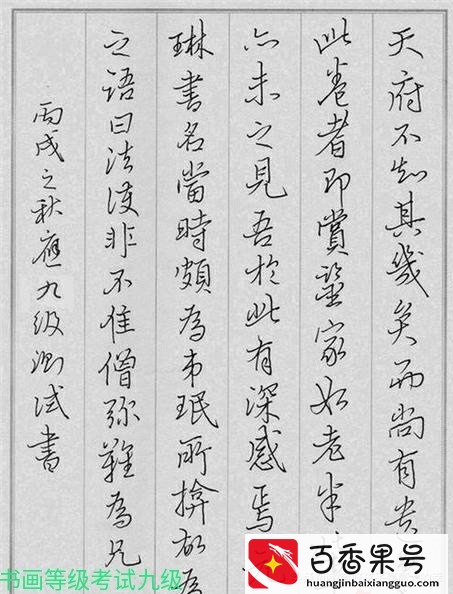 天府不知其幾矣而尚有
此卷者即賞鑒家如老米
亦未之見吾於此有深感焉
琳書名當時頗為弟珉所揜故為
之語曰法護非不佳僧彌難為兄
丙戌之秋應九级测试書
书画等级考试九级
百香果号
huangjinbaixiangguo.com